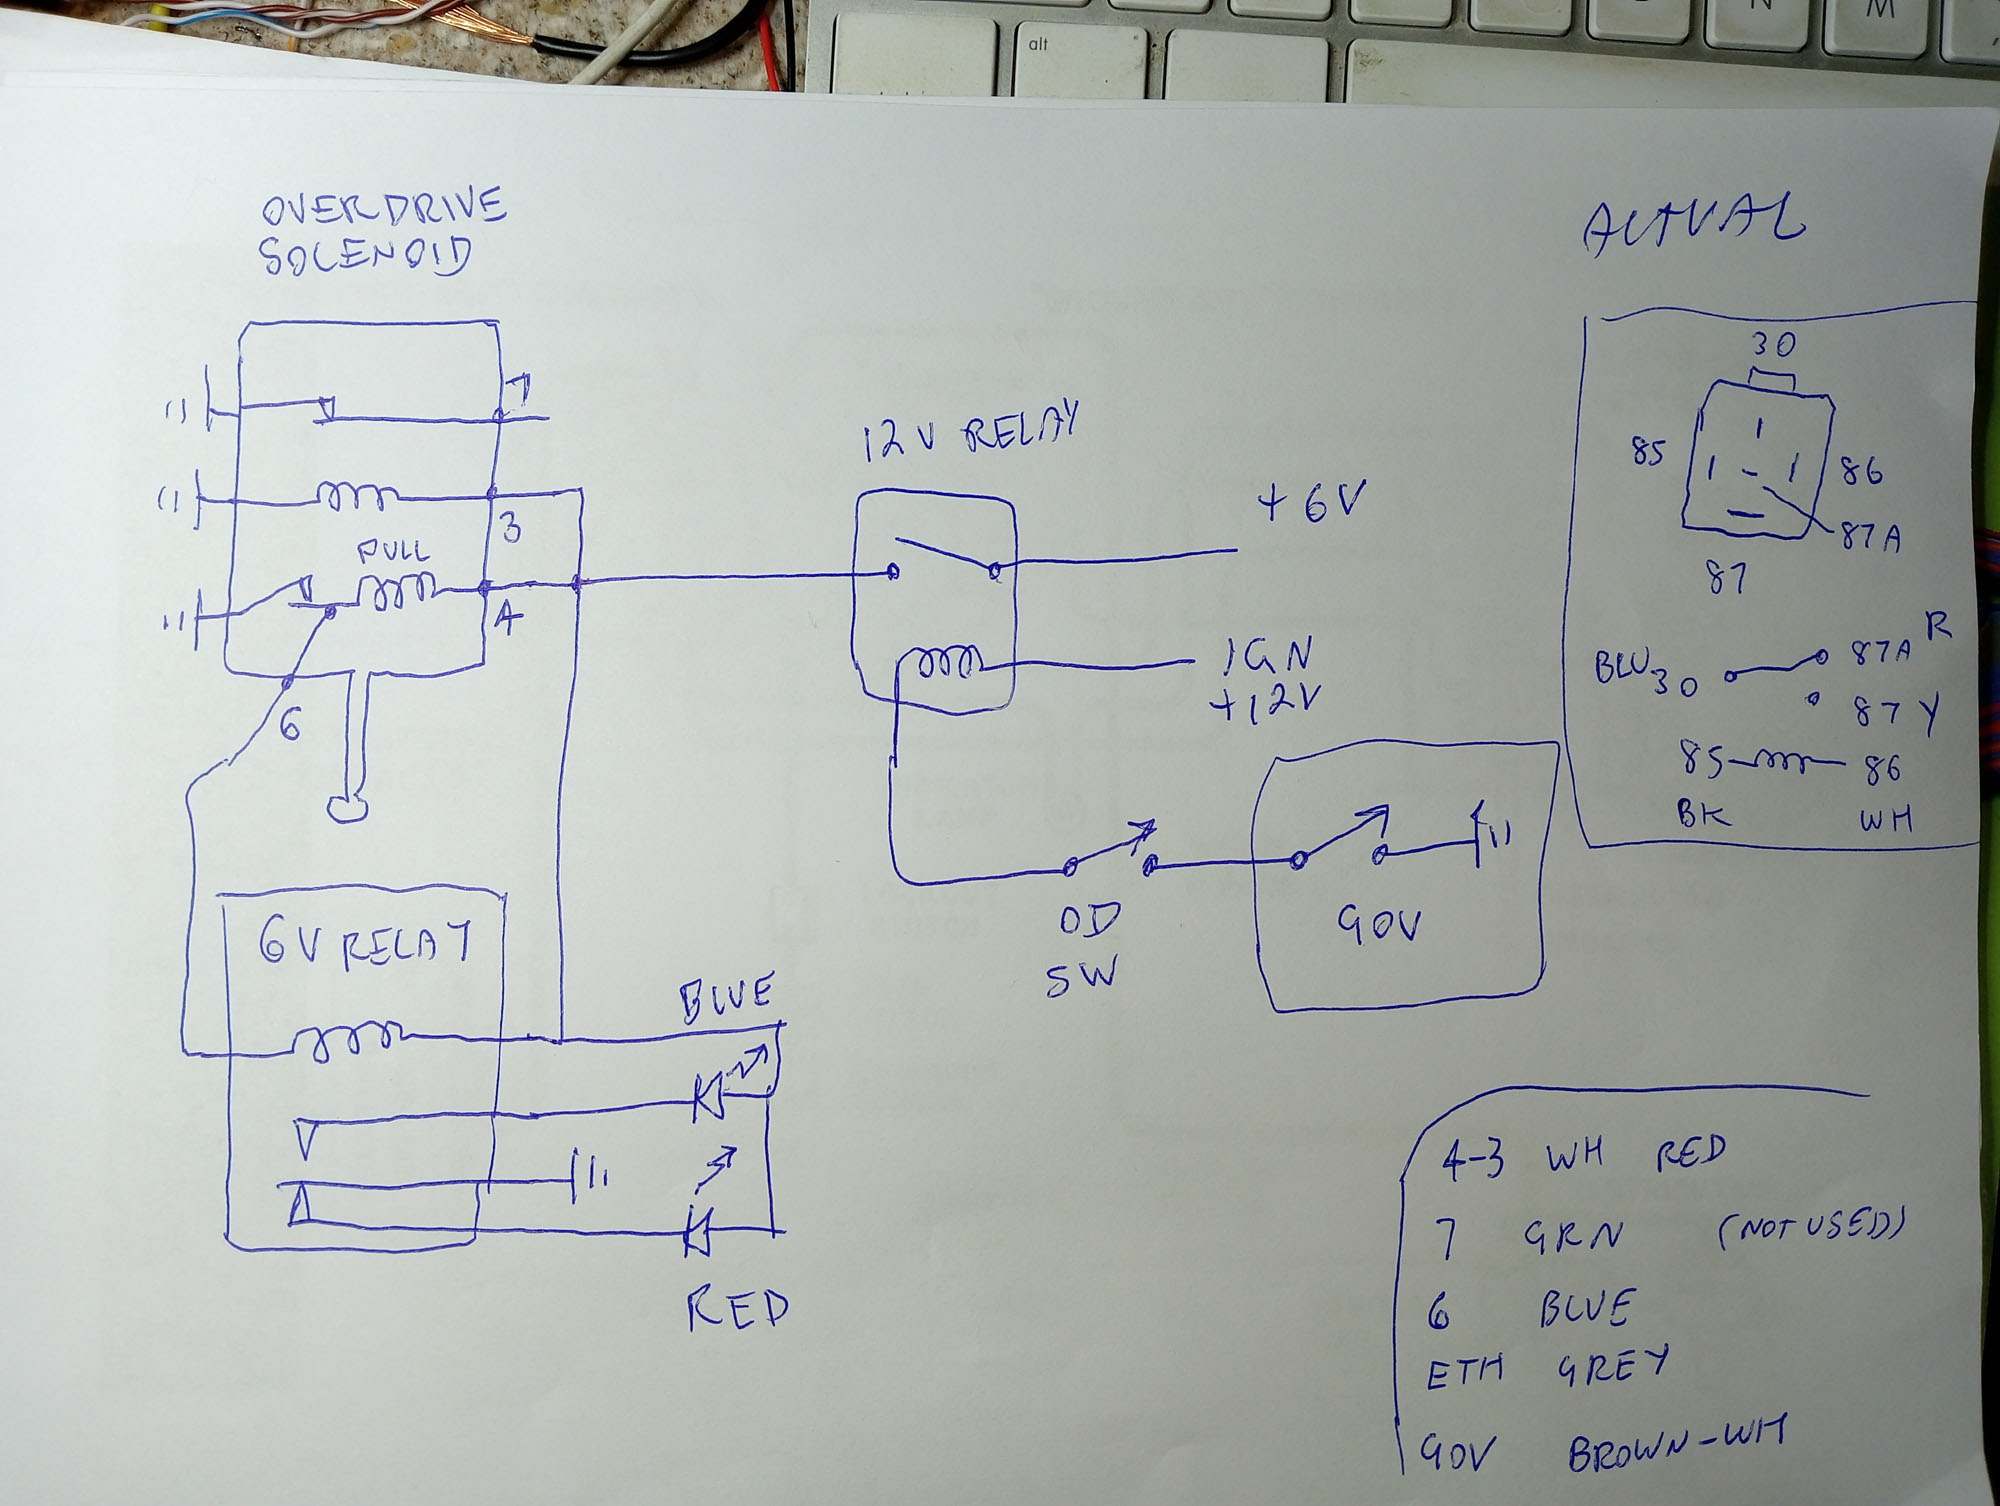 alt
N
M
OVERDRIVE
SOLENOID
7
3
PULL
4
6
12V RELAY
+6V
IGN
+12V
OD
SW
GOV
6V RELAY
BLUE
RED
ACTUAL
30
85
86
87A
87
BLU 30
87A R
87 Y
85
86
BK
WH
4-3 WH RED
7 GRN (NOT USED)
6 BLUE
ETH GREY
GOV BROWN-WH